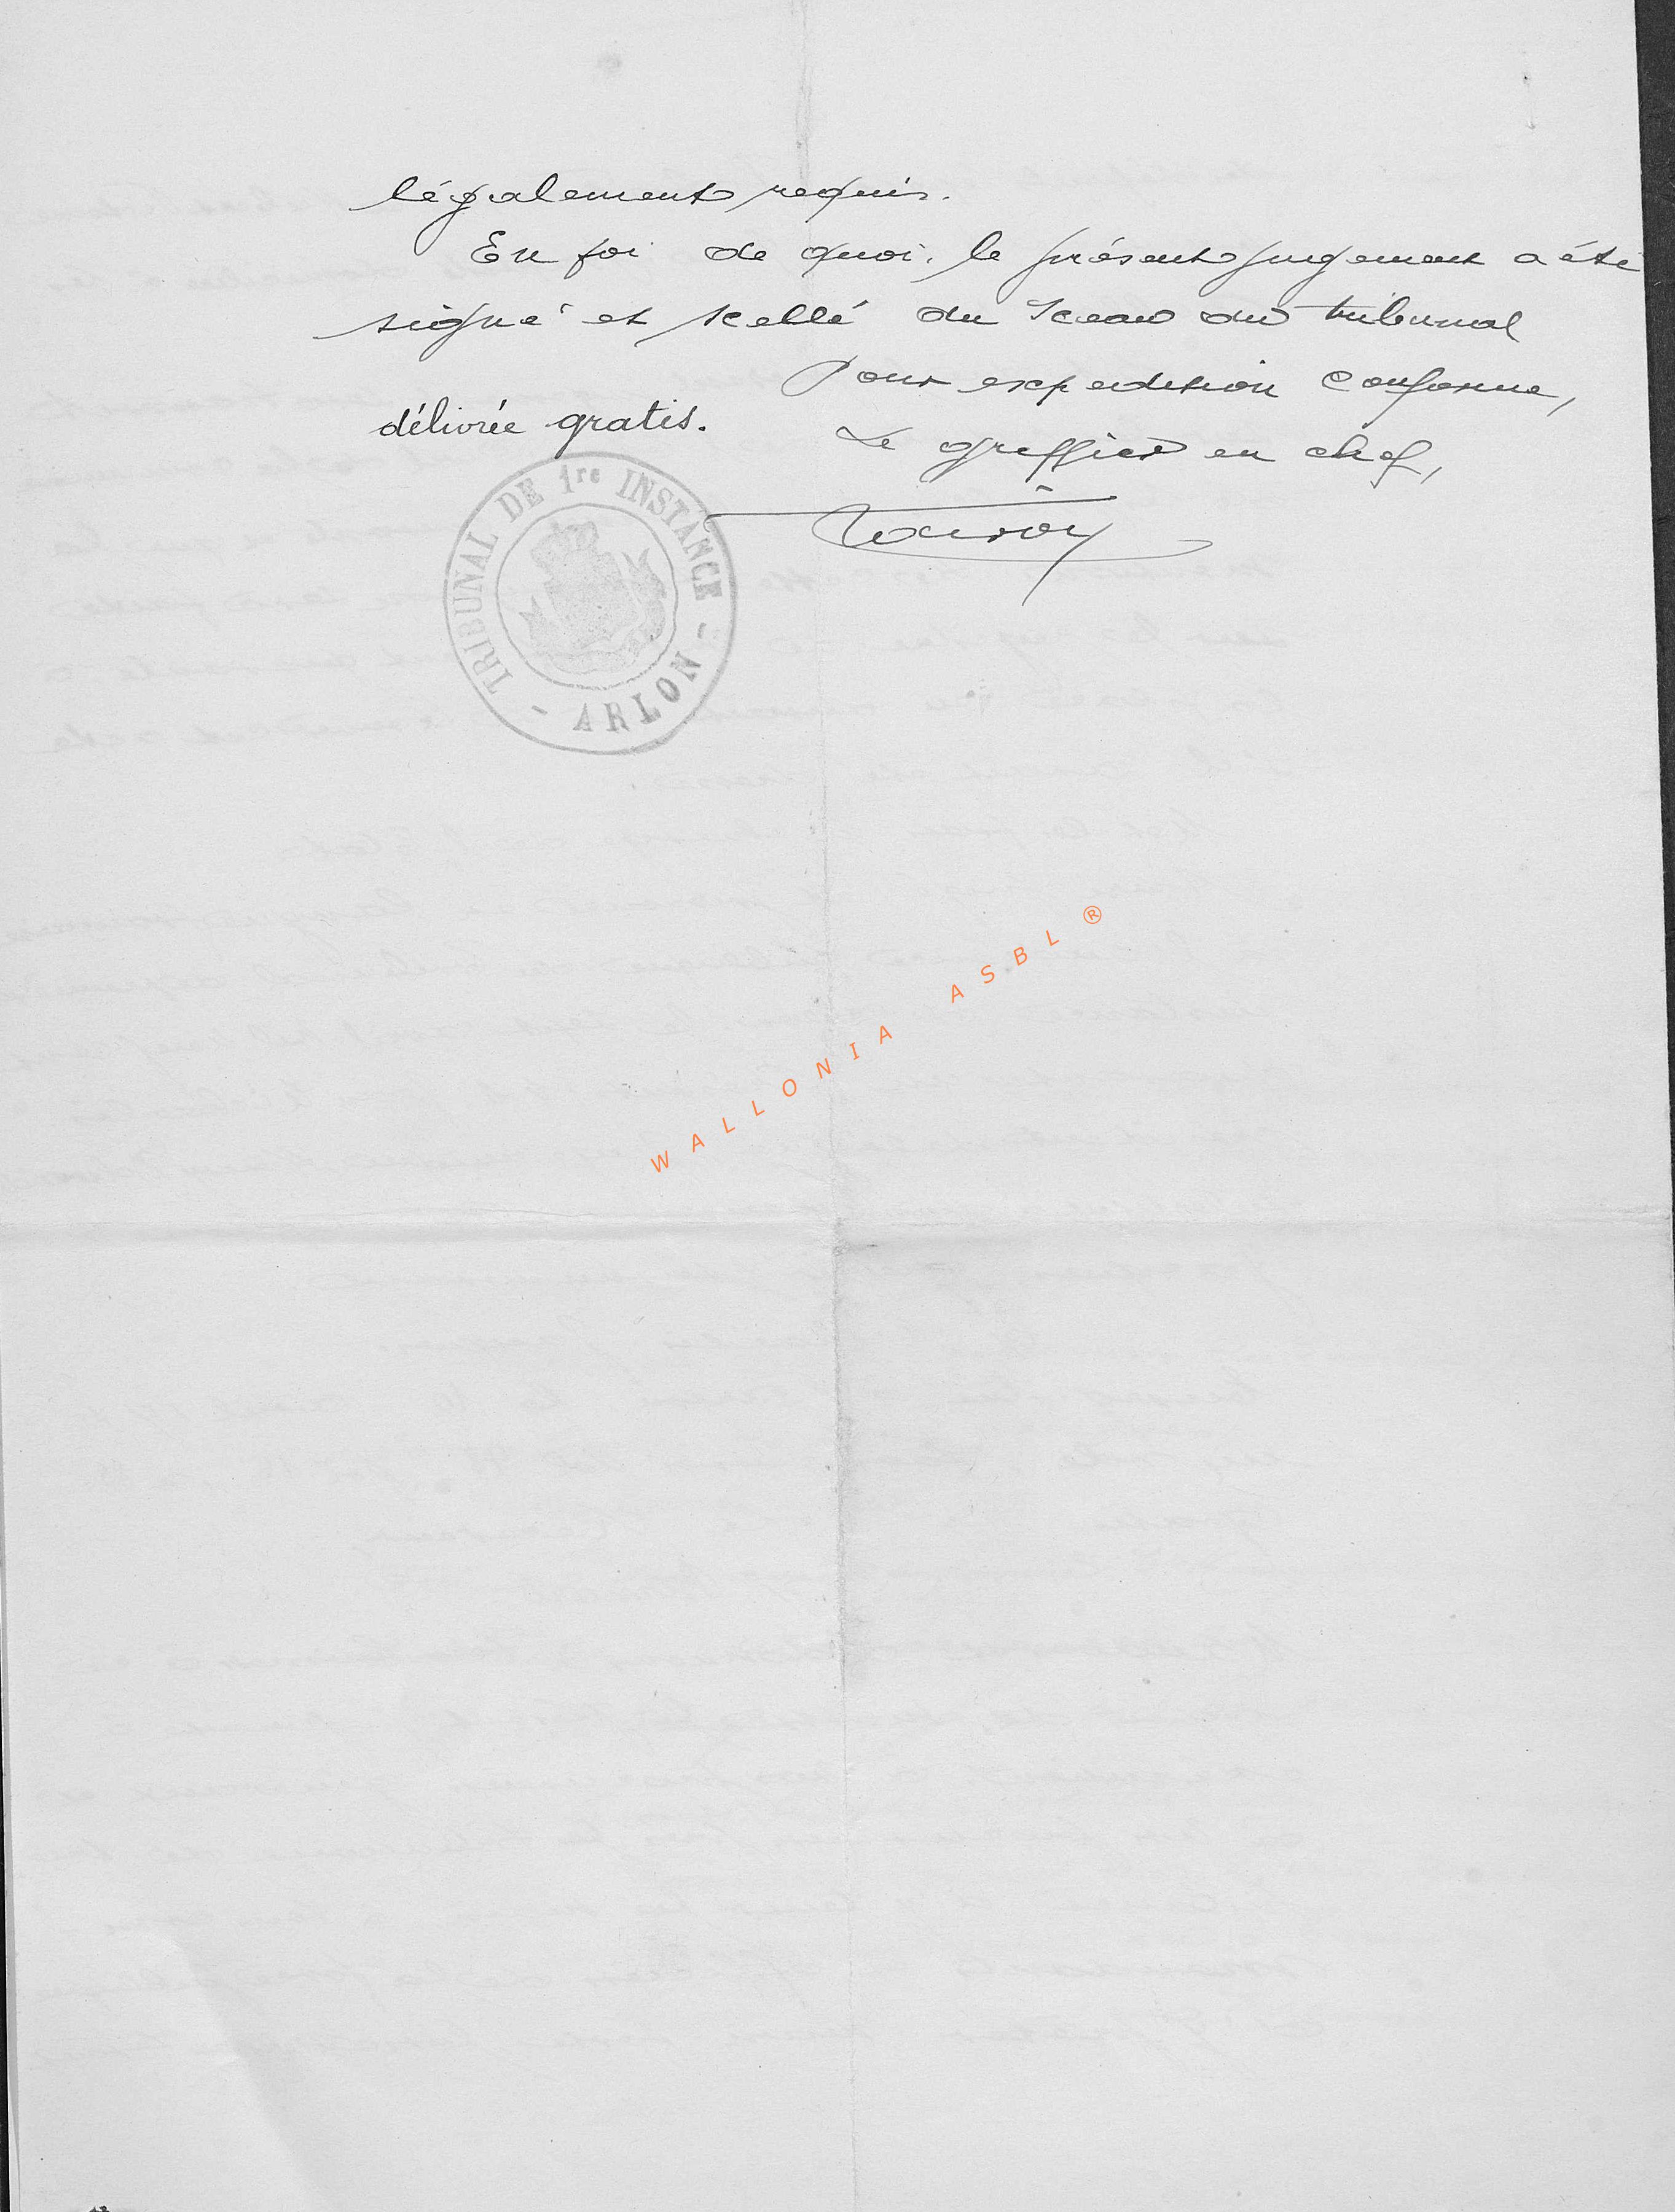 légalement requis.
En foi de quoi, le présent jugement a été
signé et scellé du sceau du tribunal
Pour expedition conforme,
délivrée gratis.
Le greffier en chef,
TRIBUNAL DE 1re INSTANCE
- ARLON -
WALLONIA ASBL ®